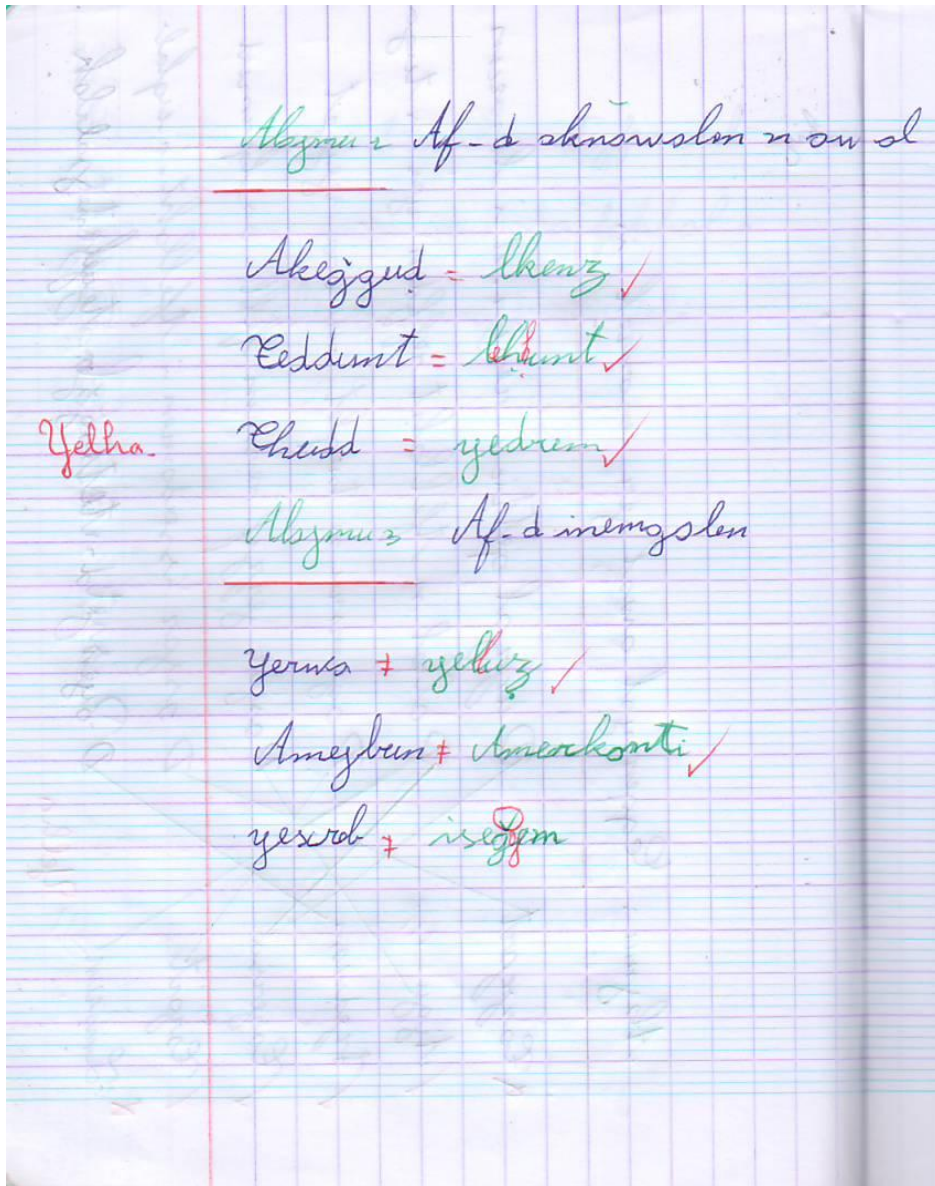 Af-d aknawalen n awal
Akeǧǧuḍ = lkenz
Teddunt = leḥunt
Yelha.
Tḥudd = yedrem
Af-d inemgalen
yerwa ≠ yelluẓ
Ameɣbun ≠ Amerkanti
yesxreb ≠ iseggem